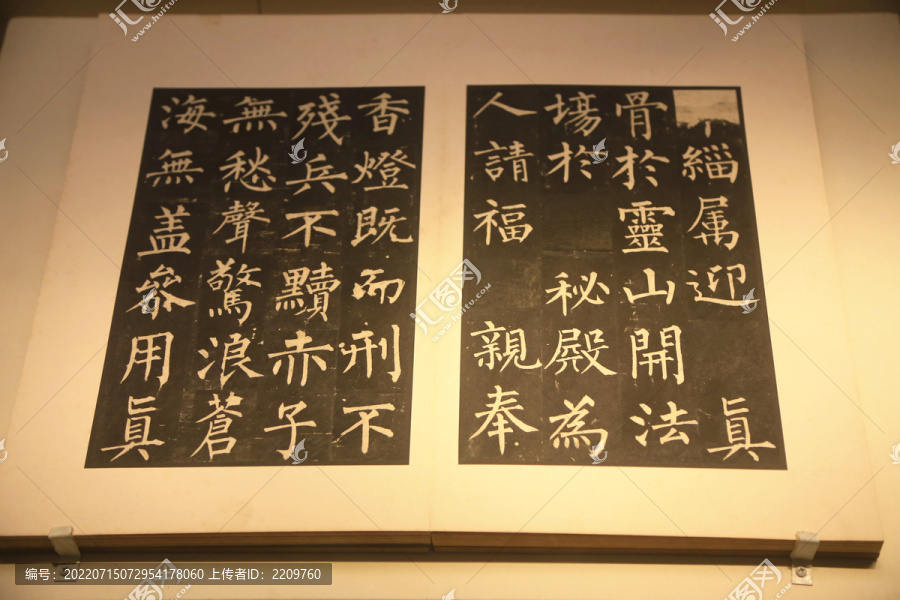 緇属迎 眞
骨於靈山開法
場於 秘殿為
人請福 親奉
香燈既而刑不
殘兵不黷赤子
無愁聲驚浪蒼
海無盖參用眞
编号：20220715072954178060 上传者ID：2209760